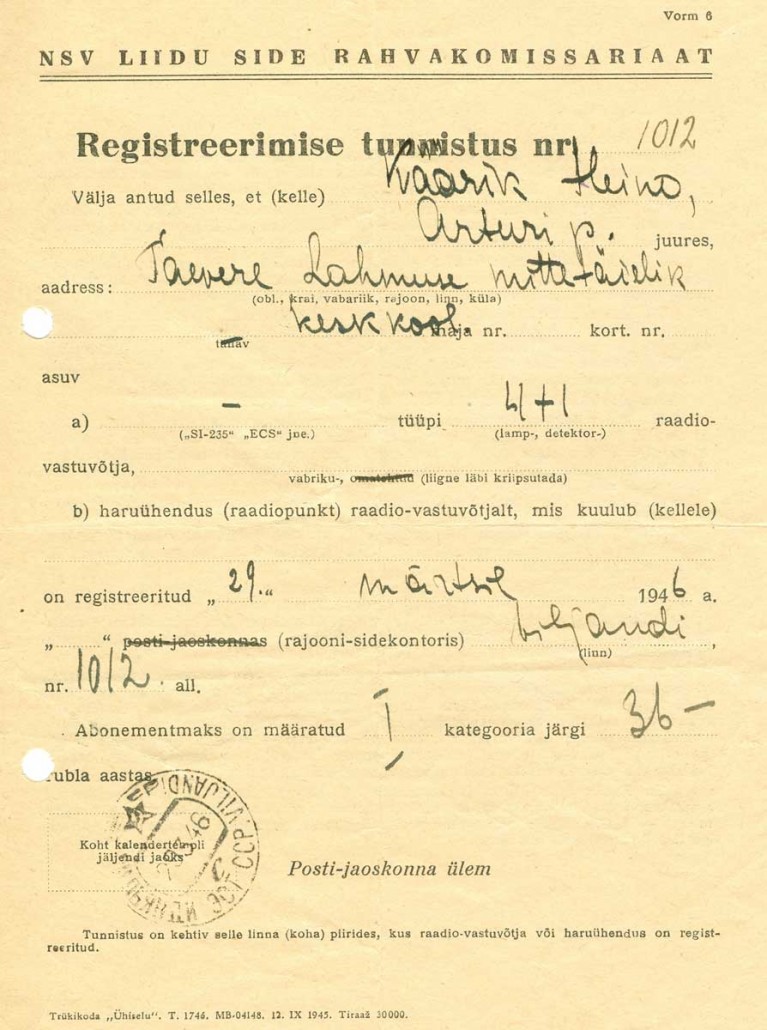 Vorm 6
NSV LIIDU SIDE RAHVAKOMISSARIAAT
Registreerimise tunnistus nr. 1012
Välja antud selles, et (kelle) Käärik Heino,
Arturi p. juures,
aadress: Taevere Lahmuse mittetäielik
(obl., krai, vabariik, rajoon, linn, küla)
keskkool. maja nr. kort. nr.
tänav
asuv
a) — tüüpi 4+1 raadio-
(„SI-235“ „ECS“ jne.) (lamp-, detektor-)
vastuvõtja,
vabriku-, omatehtud (liigne läbi kriipsutada)
b) haruühendus (raadiopunkt) raadio-vastuvõtjalt, mis kuulub (kellele)
on registreeritud „29.“ märtsil 1946 a.
„ “ posti-jaoskonnas (rajooni-sidekontoris) Viljandi,
(linn)
nr. 1012. all.
Abonementmaks on määratud I kategooria järgi 36—
rubla aastas
Koht kalendertempli
jäljendi jaoks
VILJANDI
Posti-jaoskonna ülem
Tunnistus on kehtiv selle linna (koha) piirides, kus raadio-vastuvõtja või haruühendus on regist-
reeritud.
Trükikoda „Ühiselu“. T. 1746. MB-04148. 12. IX 1945. Tiraaž 30000.